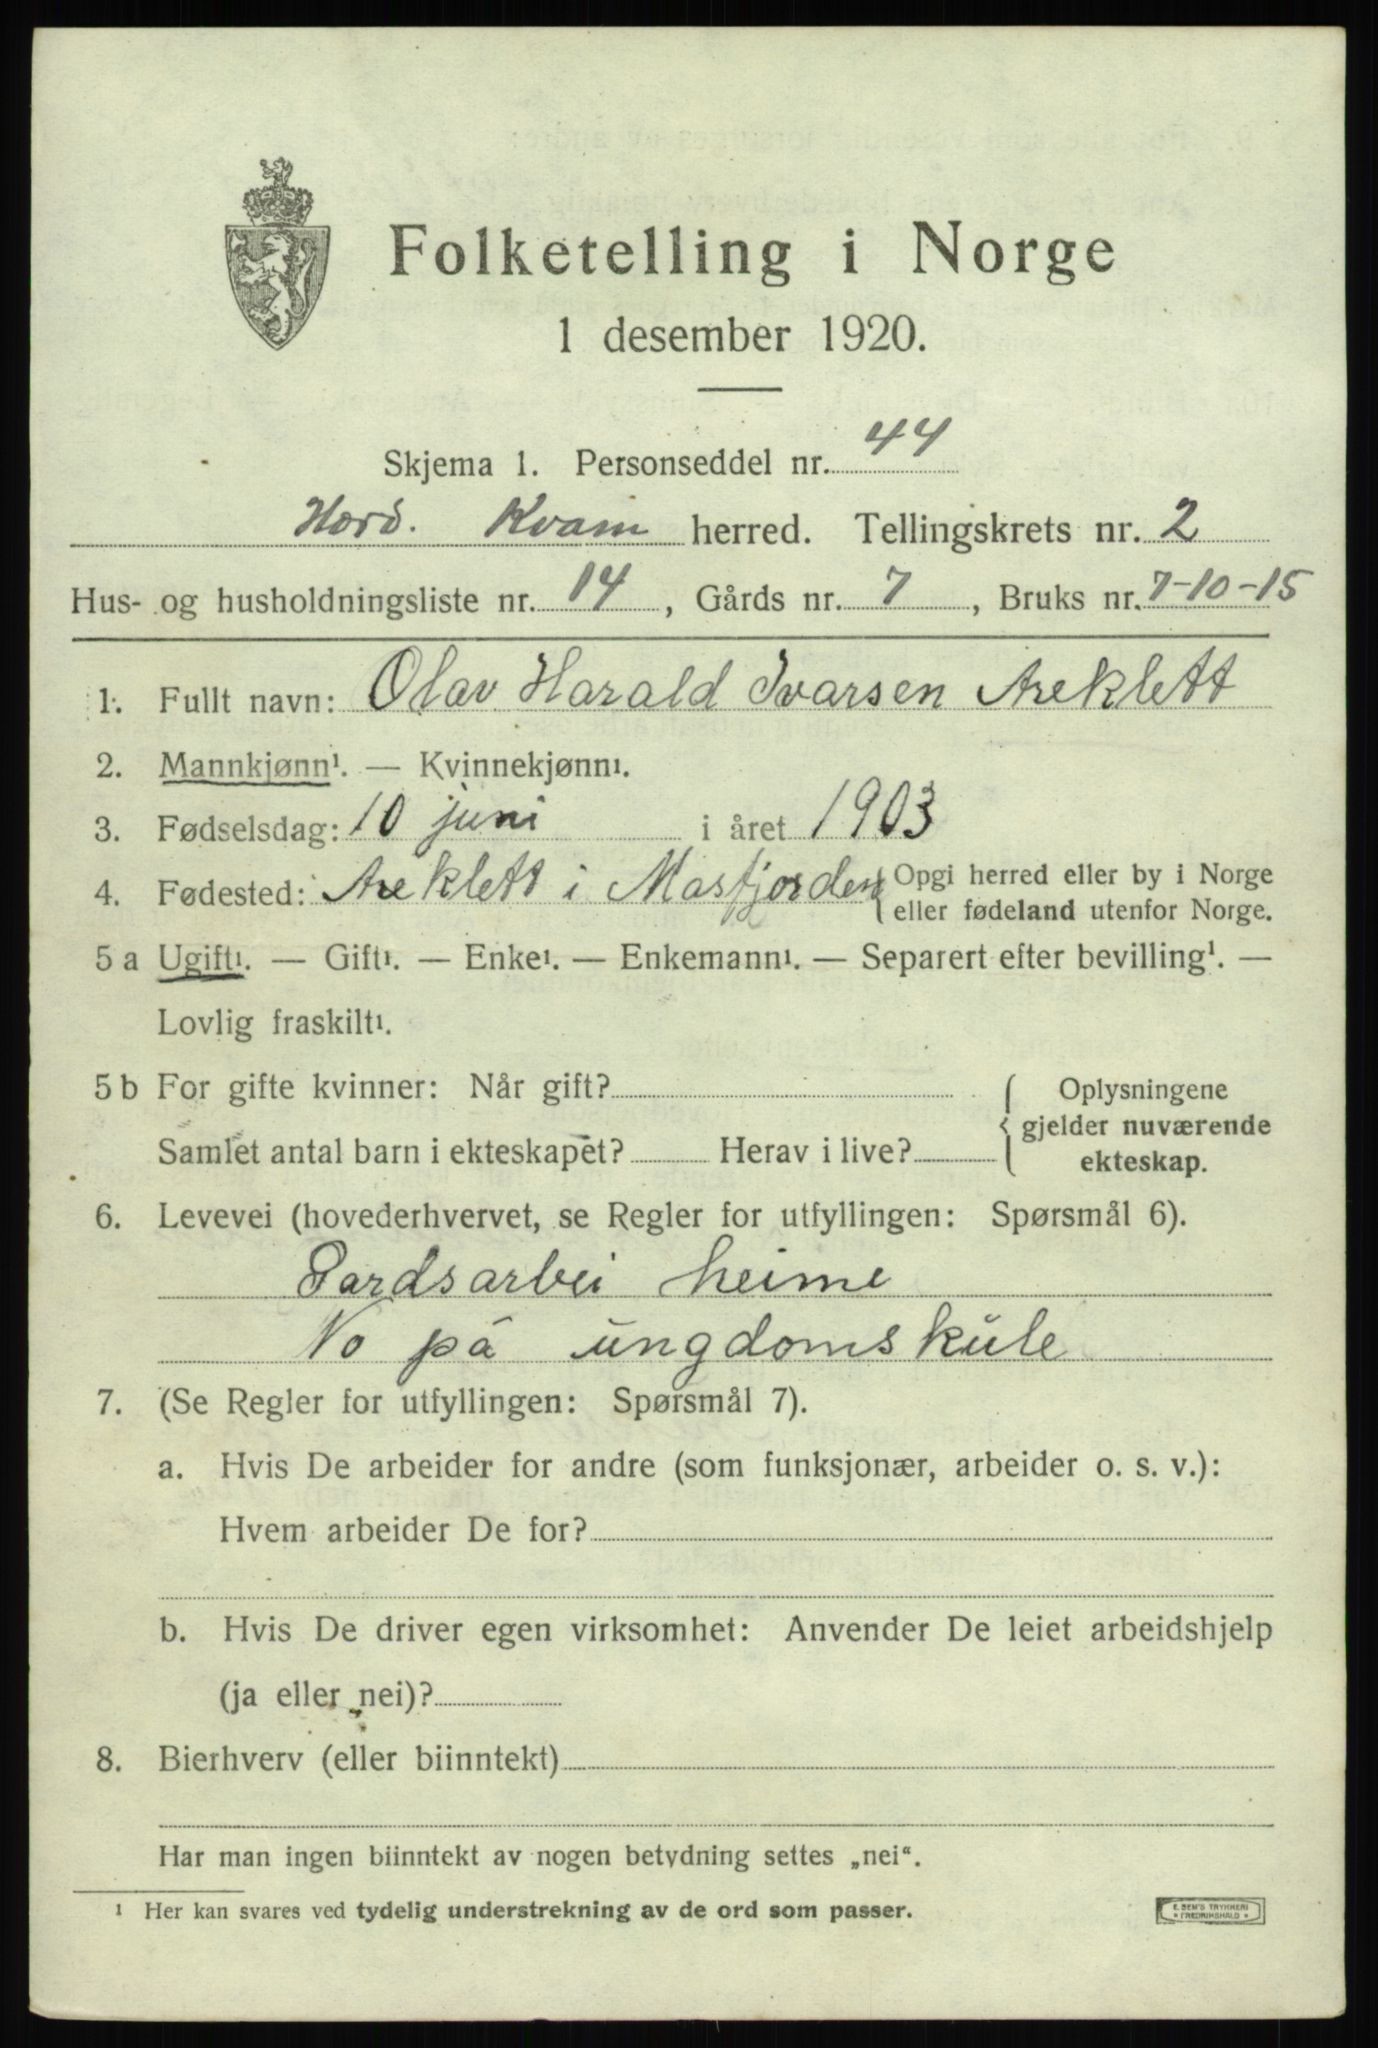 Folketelling i Norge
1 desember 1920.
Skjema 1. Personseddel nr. 44
Hord. Kvam herred. Tellingskrets nr. 2
Hus- og husholdningsliste nr. 14, Gårds nr. 7, Bruks nr. 7-10-15
1. Fullt navn: Olav Harald Ivarsen Areklett
2. Mannkjønn¹. — Kvinnekjønn¹.
3. Fødselsdag: 10 juni i året 1903
4. Fødested: Areklett i Masfjorden { Opgi herred eller by i Norge
eller fødeland utenfor Norge.
5 a Ugift¹. — Gift¹. — Enke¹. — Enkemann¹. — Separert efter bevilling¹. —
Lovlig fraskilt¹.
5 b For gifte kvinner: Når gift? { Oplysningene
gjelder nuværende
Samlet antal barn i ekteskapet? Herav i live? ekteskap.
6. Levevei (hovederhvervet, se Regler for utfyllingen: Spørsmål 6).
Gardsarbei heime
No på ungdomskule
7. (Se Regler for utfyllingen: Spørsmål 7).
a. Hvis De arbeider for andre (som funksjonær, arbeider o. s. v.):
Hvem arbeider De for?
b. Hvis De driver egen virksomhet: Anvender De leiet arbeidshjelp
(ja eller nei)?
8. Bierhverv (eller biinntekt)
Har man ingen biinntekt av nogen betydning settes „nei“.
¹ Her kan svares ved tydelig understrekning av de ord som passer.
E. SEM'S TRYKKERI
* FREDRIKSHALD *